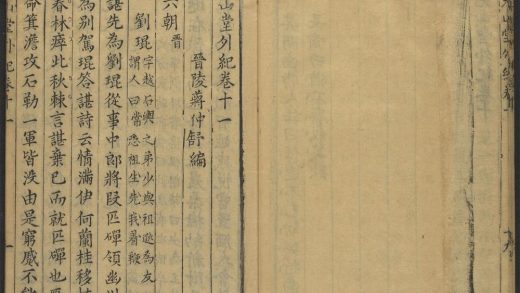 山堂外紀卷十一
晉陵蔣仲舒編
六朝 晉
劉琨 字越石輿之弟少與祖逖為友
謂人曰常恐祖生先我著鞭
諶先為劉琨從事中郎將段匹磾領幽
為別駕琨答諶詩云情滿伊何蘭桂移
春林瘁此秋棘言諶棄己而就匹磾也
命箕澹攻石勒一軍皆没由是窮蹙不